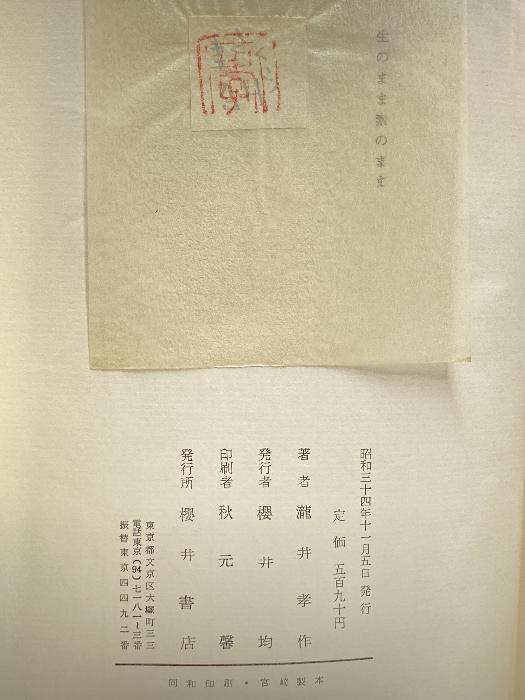 生のまま素のまま
昭和三十四年十一月五日 発行
定価 五百九十円
著者 瀧井孝作
発行者 櫻井均
印刷者 秋元馨
発行所 櫻井書店
東京都文京区大塚町三三
電話東京(94)七一八一~三番
振替東京四四九二番
同和印刷・宮崎製本